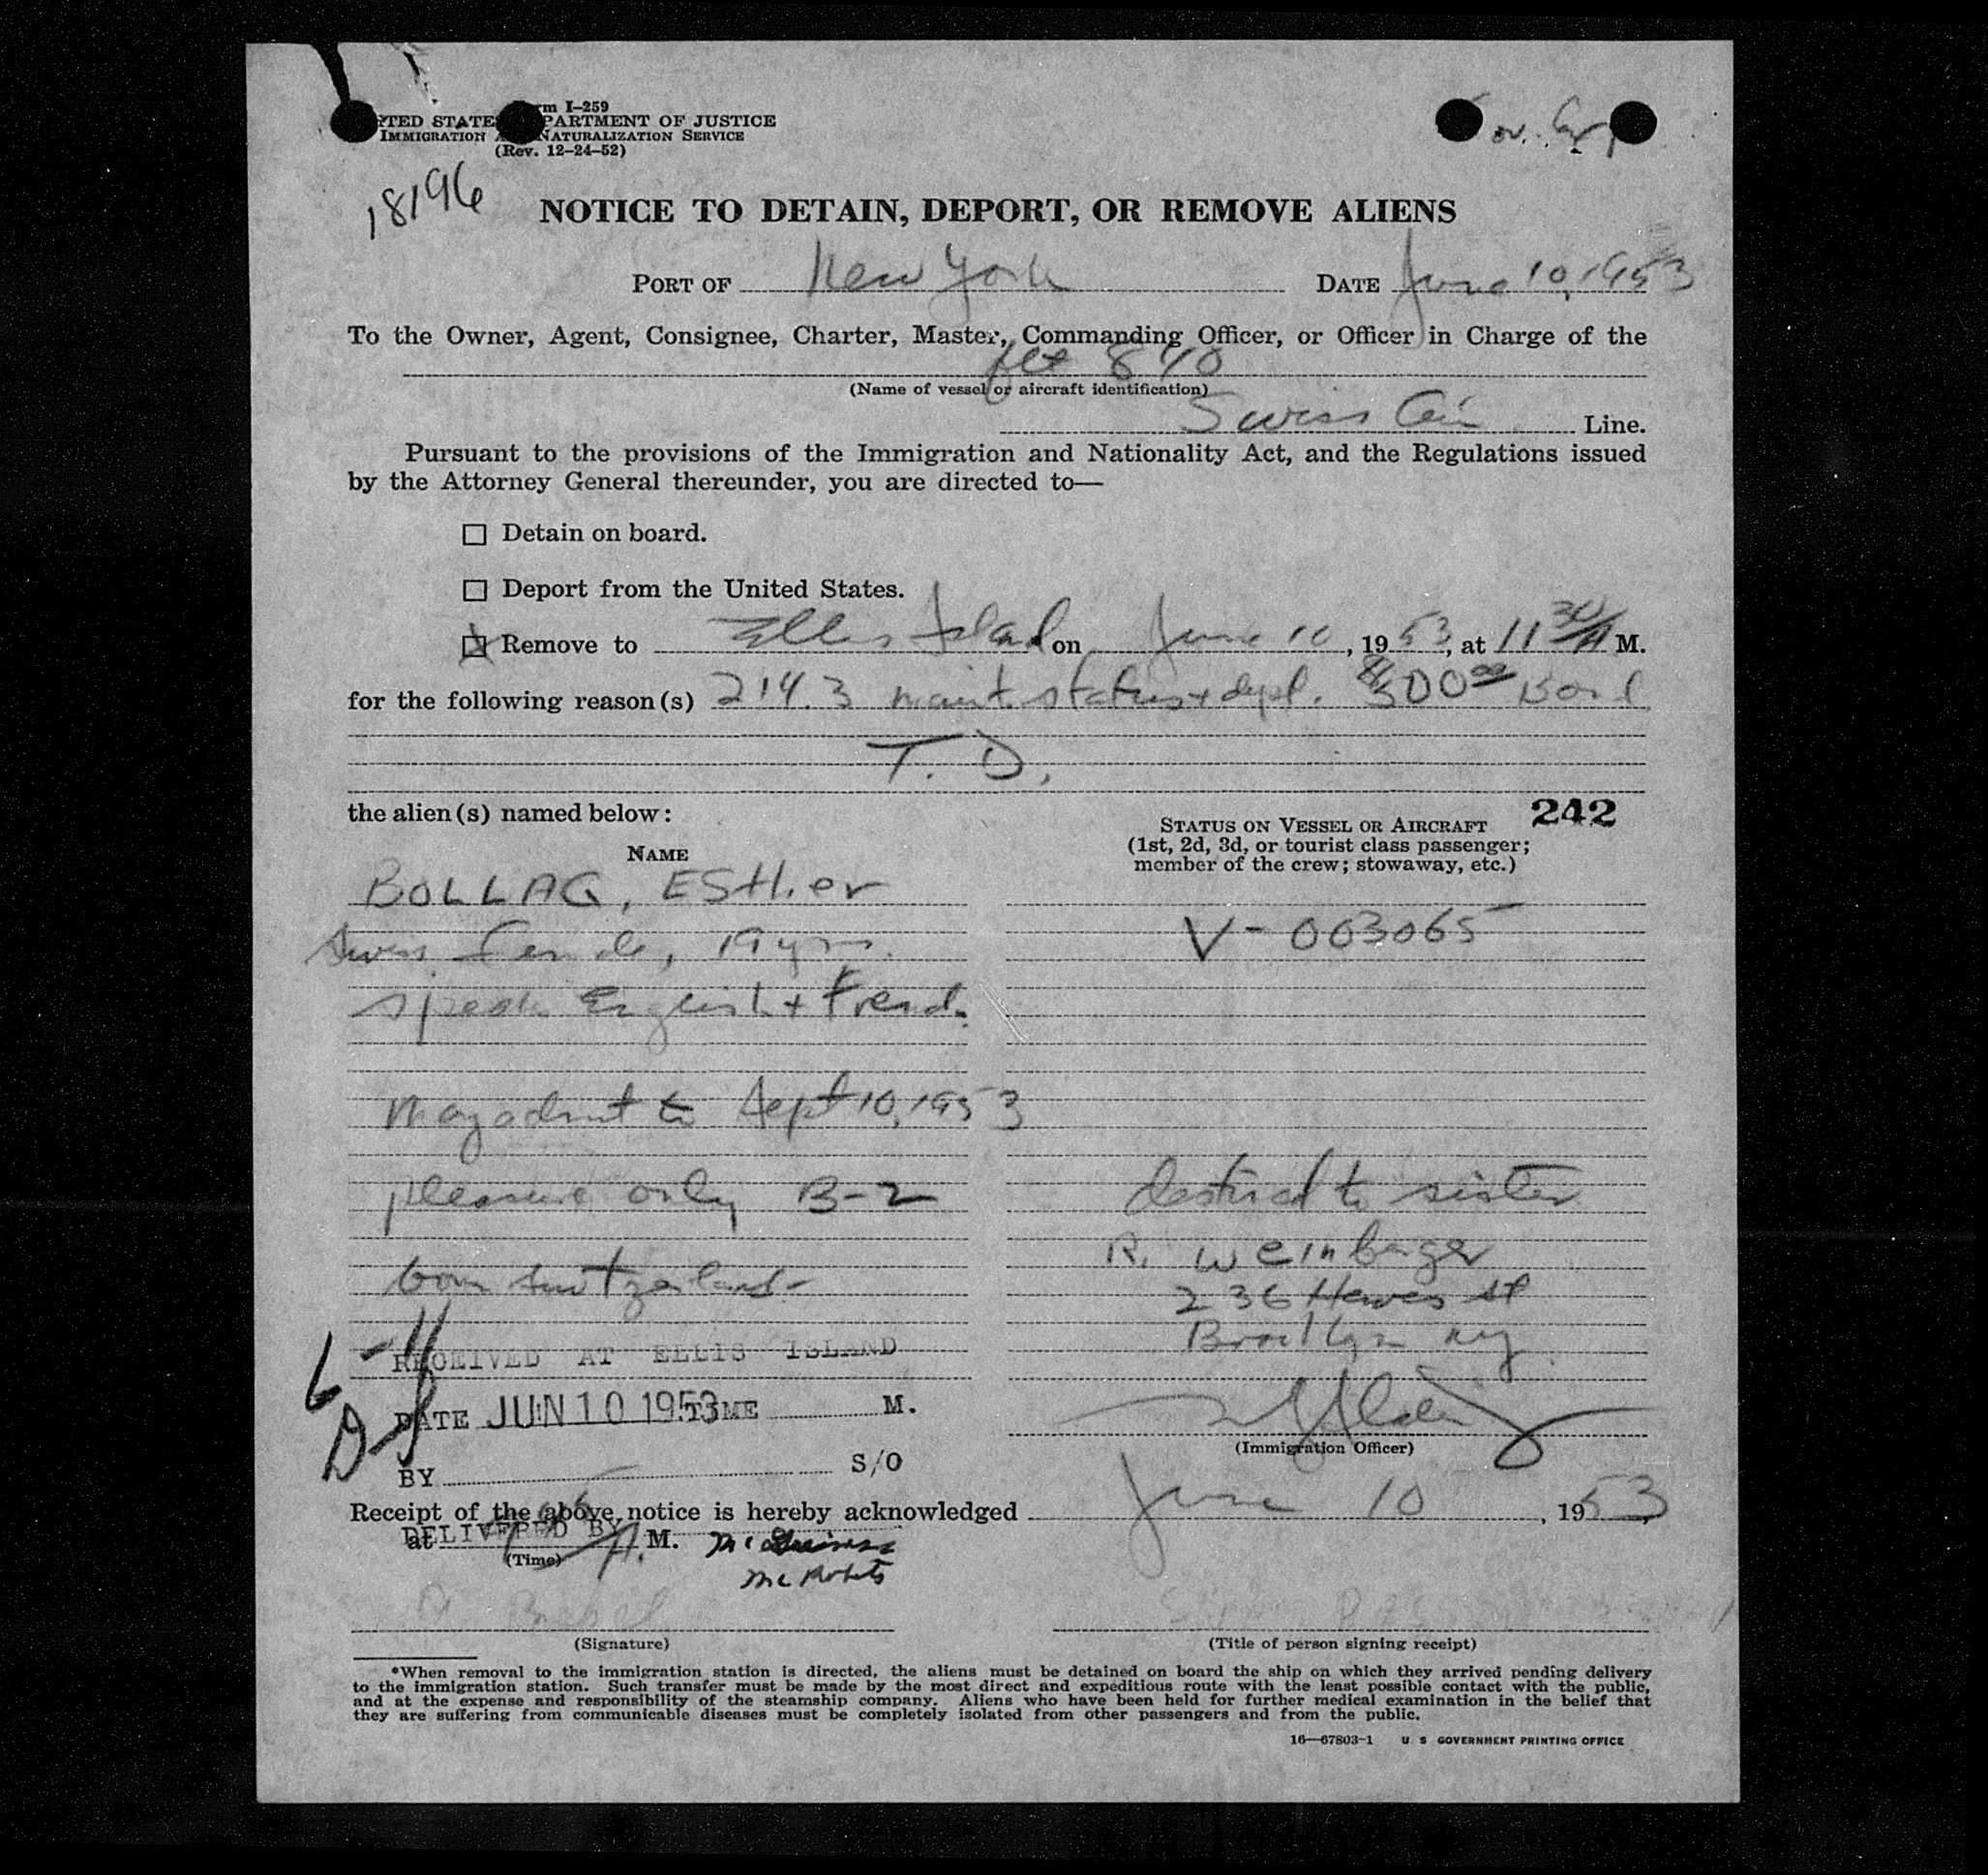 Form I-259
UNITED STATES DEPARTMENT OF JUSTICE
IMMIGRATION AND NATURALIZATION SERVICE
(Rev. 12-24-52)
18196
NOTICE TO DETAIN, DEPORT, OR REMOVE ALIENS
PORT OF New York DATE June 10, 1953
To the Owner, Agent, Consignee, Charter, Master, Commanding Officer, or Officer in Charge of the
flt 840
(Name of vessel or aircraft identification)
Swiss Air Line.
Pursuant to the provisions of the Immigration and Nationality Act, and the Regulations issued
by the Attorney General thereunder, you are directed to—
☐ Detain on board.
☐ Deport from the United States.
☒ Remove to Ellis Island on June 10, 1953, at 11 30/A M.
for the following reason(s) 214.3 maint. status + dept. $500.00 Bond
T. D.
the alien(s) named below:
242
NAME
STATUS ON VESSEL OR AIRCRAFT
(1st, 2d, 3d, or tourist class passenger;
member of the crew; stowaway, etc.)
BOLLAG, ESther
V-003065
Swiss female, 19 yrs.
speaks English + French.
may admit to Sept 10, 1953
pleasure only B-2
destined to sister
R. Weinberger
born Switzerland
236 Hewes St
Brooklyn NY
RECEIVED AT ELLIS ISLAND
DATE JUN 10 1953 TIME M.
(Immigration Officer)
BY S/O
Receipt of the above notice is hereby acknowledged June 10, 1953,
DELIVERED BY
at A. M.
(Time)
Mc Roberts
(Signature)
(Title of person signing receipt)
*When removal to the immigration station is directed, the aliens must be detained on board the ship on which they arrived pending delivery
to the immigration station. Such transfer must be made by the most direct and expeditious route with the least possible contact with the public,
and at the expense and responsibility of the steamship company. Aliens who have been held for further medical examination in the belief that
they are suffering from communicable diseases must be completely isolated from other passengers and from the public.
16—67803-1 U S GOVERNMENT PRINTING OFFICE